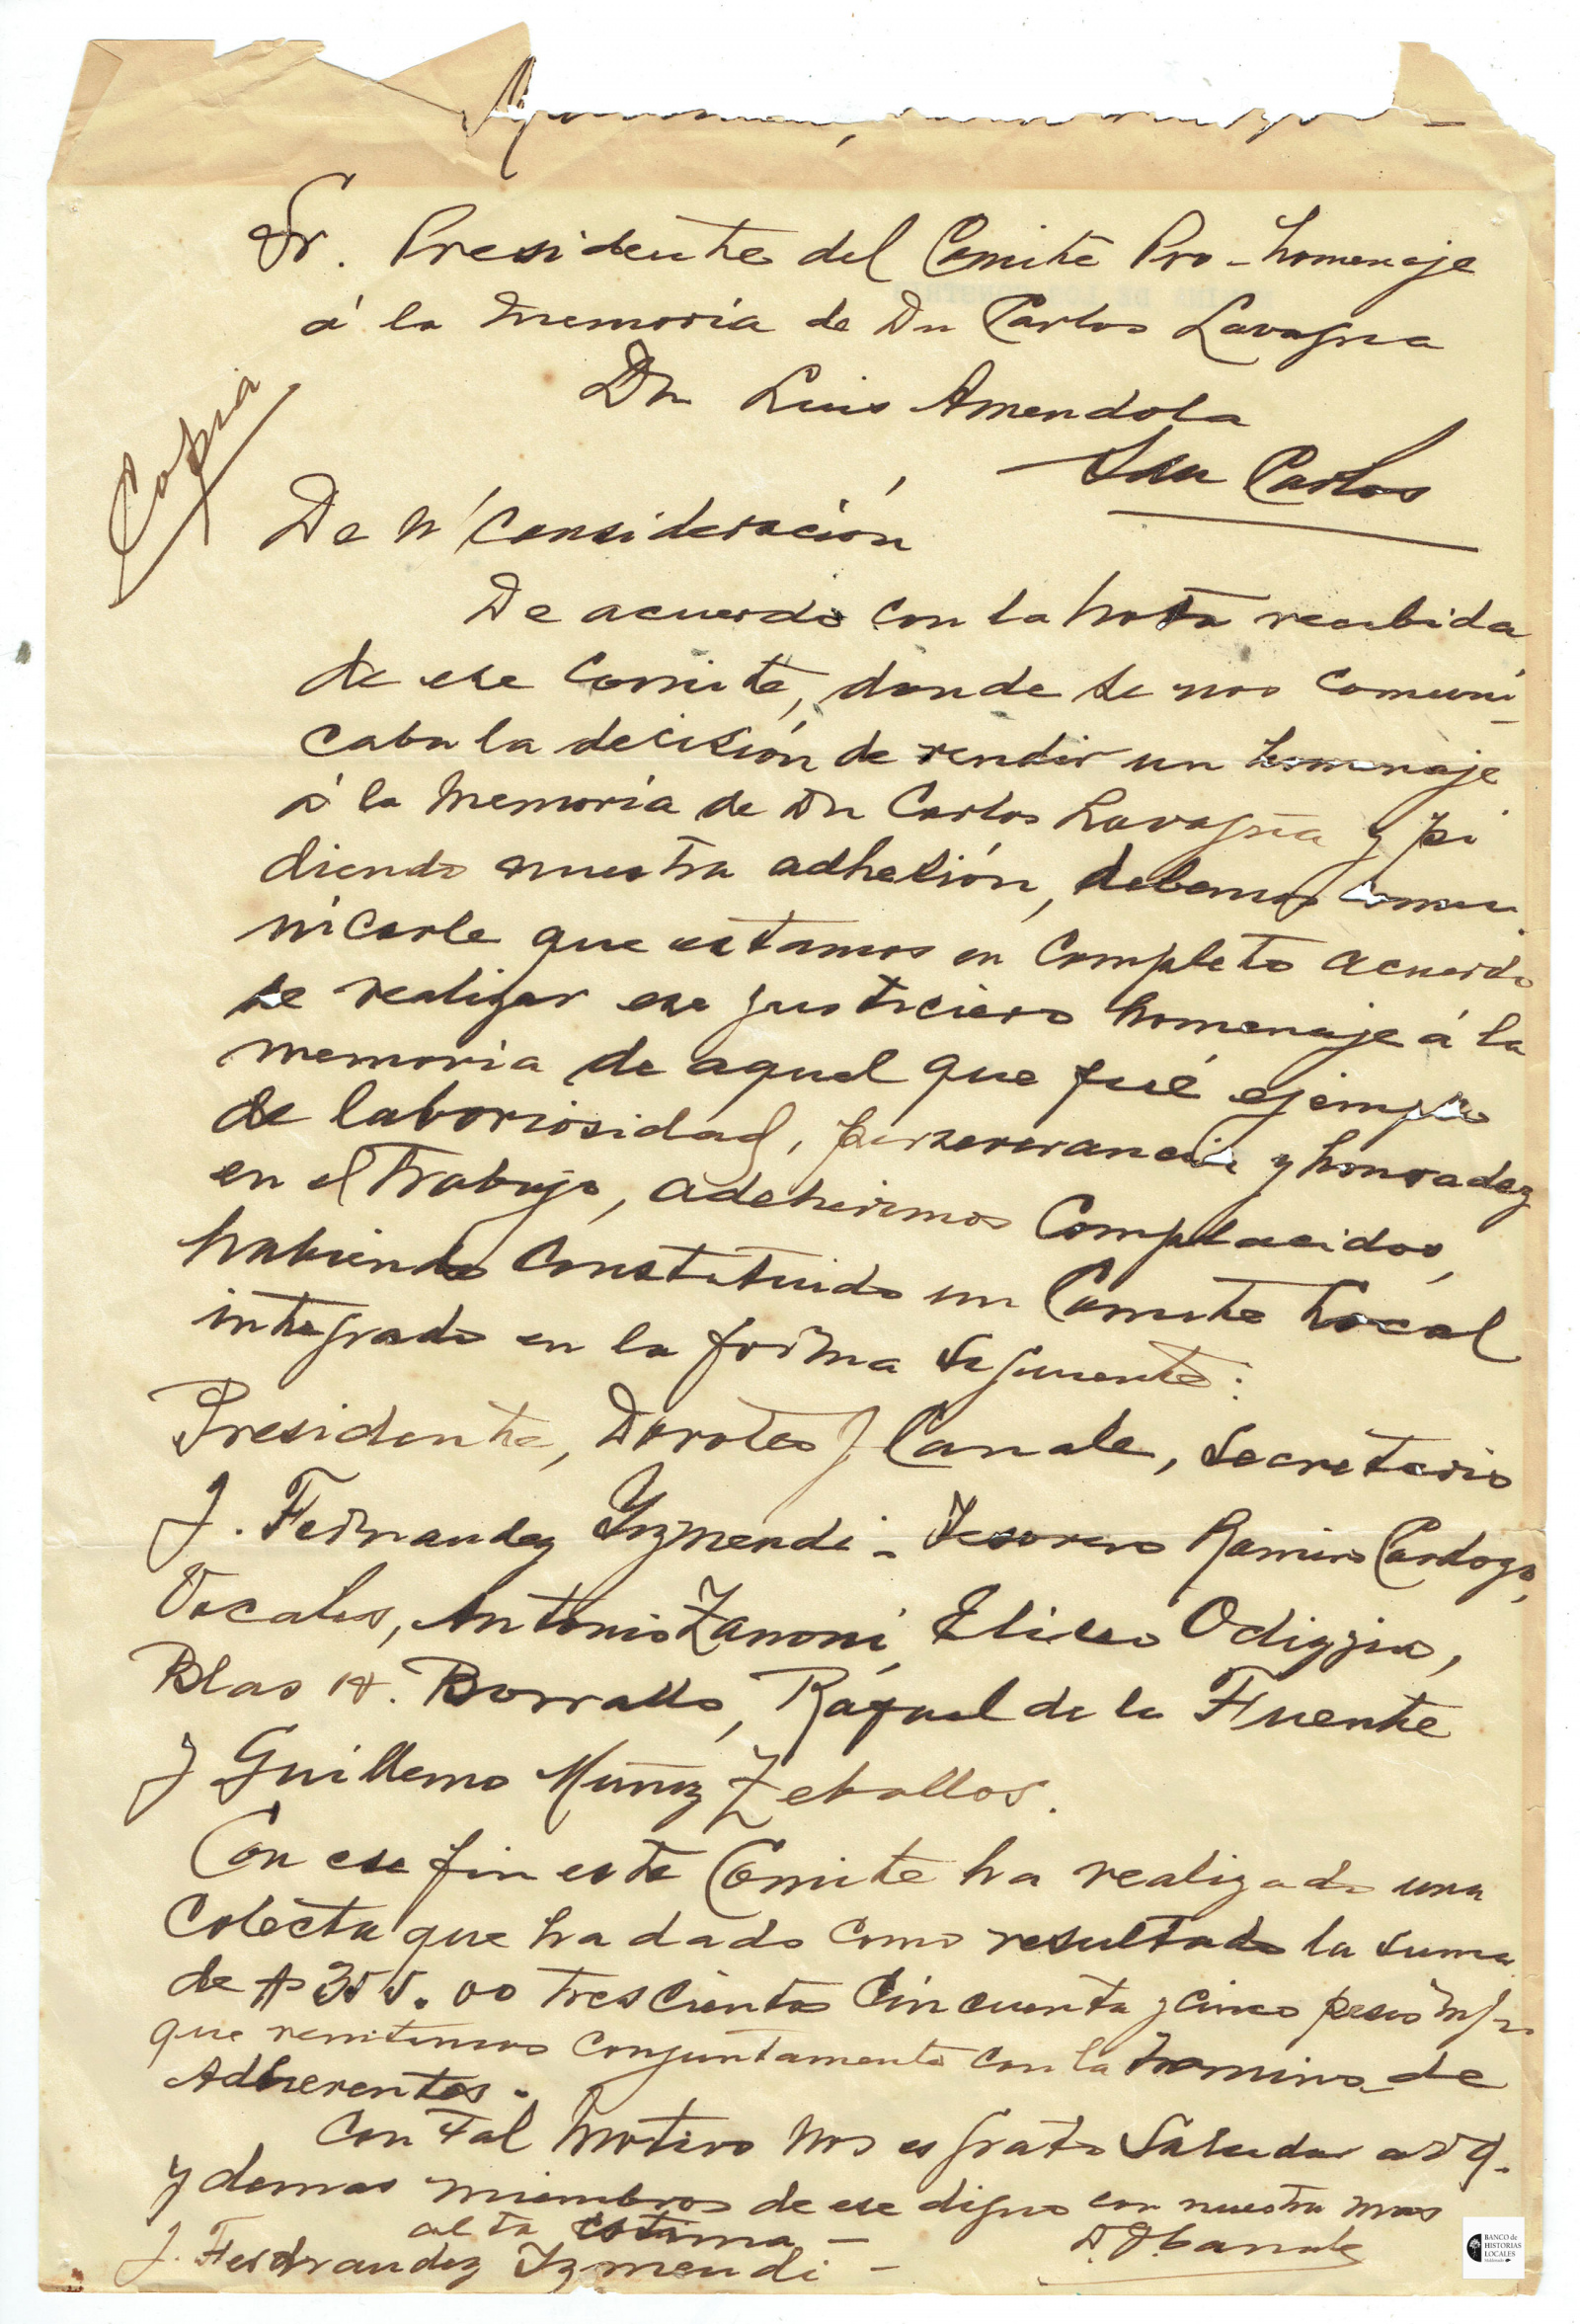 Sr. Presidente del Comité Pro-homenaje
á la memoria de Dn Carlos Lavagna
Dn Luis Amendola
San Carlos
Copia
De n/ consideración
De acuerdo con la nota recibida
de ese Comité, donde se nos comuni
caba la decisión de rendir un homenaje
á la memoria de Dn Carlos Lavagna y pi
diendo nuestra adhesión, debemos comu
nicarle que estamos en completo acuerdo
de realizar ese justiciero homenaje á la
memoria de aquel que fué ejemplo
de laboriosidad, perseverancia y honradez
en el trabajo, adherimos complacidos,
habiendo constituido un Comite Local
integrado en la forma siguiente:
Presidente, Doroteo J Canale, Secretario
J. Fernandez Yzmendi - Tesorero Ramiro Cardozo,
Vocales, Antonio Zanoni, Eliseo Odizzio,
Blas H. Borrallo, Rafael de la Fuente
y Guillermo Muñiz Zeballos.
Con ese fin este Comite ha realizado una
Colecta que ha dado como resultado la suma
de $ 355.00 trescientos cincuenta y cinco pesos m/n
que remitimos conjuntamente con la nomina de
Adherentes.
Con tal motivo nos es grato saludar a
y demas miembros de ese digno con nuestra mas
alta estima -
J. Fernandez Yzmendi - D. J Canale
BANCO de
HISTORIAS
LOCALES